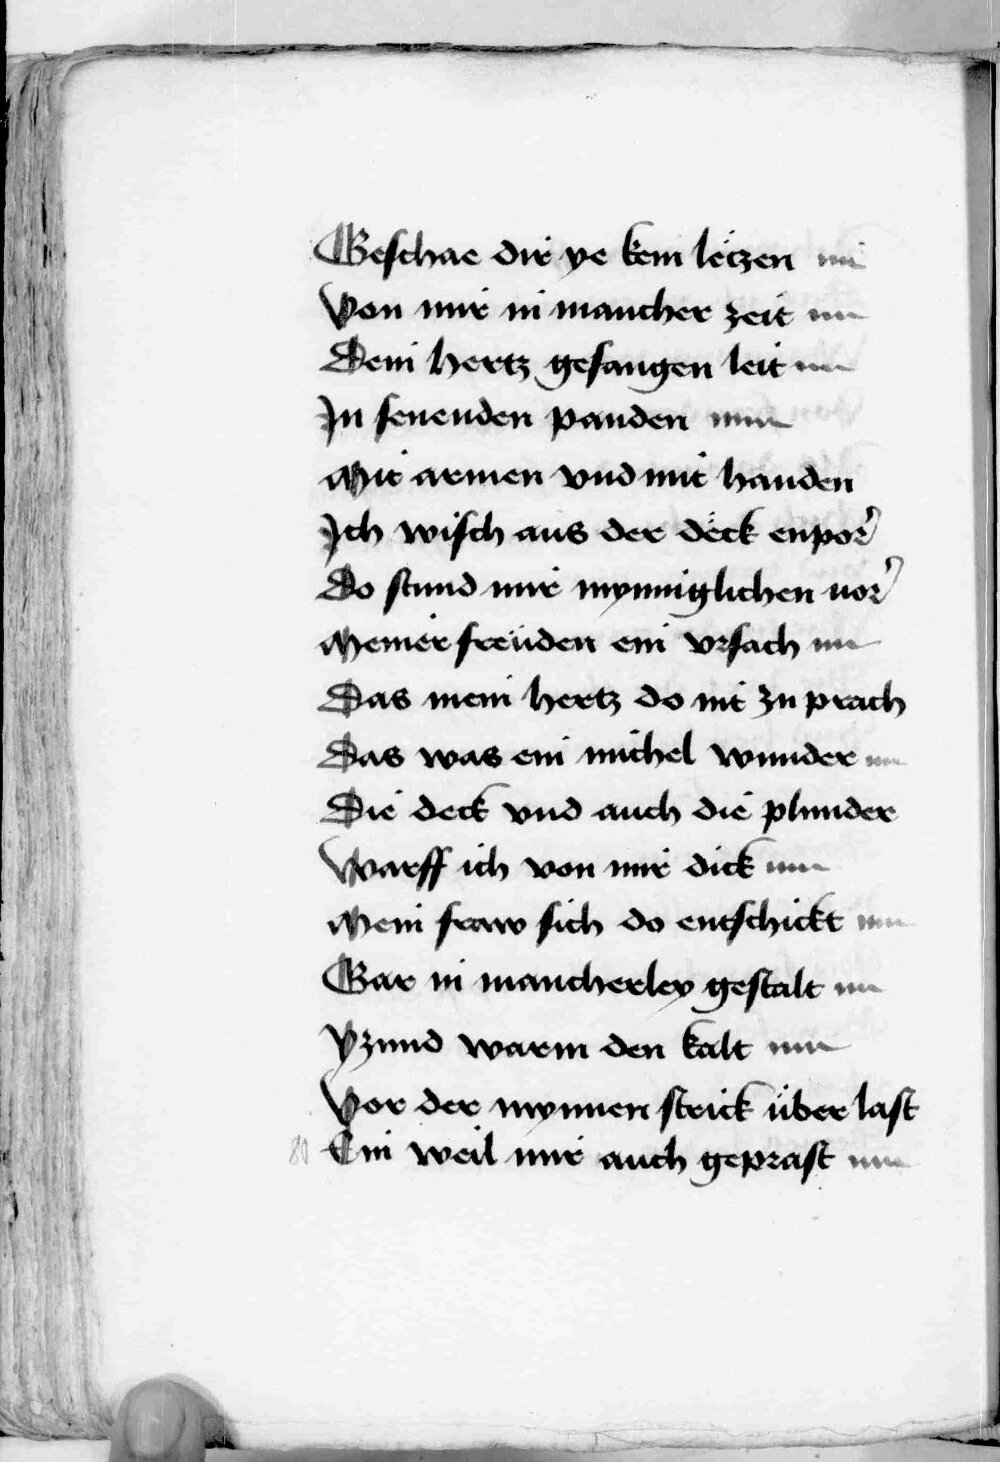 Geschae dir ye kein letzen
Von mir in mancher zeit
Dein hertz gefangen leit
In senenden panden
Mit armen vnd mit handen
Ich wisch aus der deck enpor
Do stund mir mynniglichen vor
Meiner freüden ein vrsach
Das mein hertz do nit zu prach
Das was ein michel wunder
Die deck vnd auch die plunder
Warff ich von mir dick
Mein fraw sich do entschickt
Gar in mancherley gestalt
Yzund warm den kalt
Vor der mynnen strick über last
80 Ein weil mir auch geprast